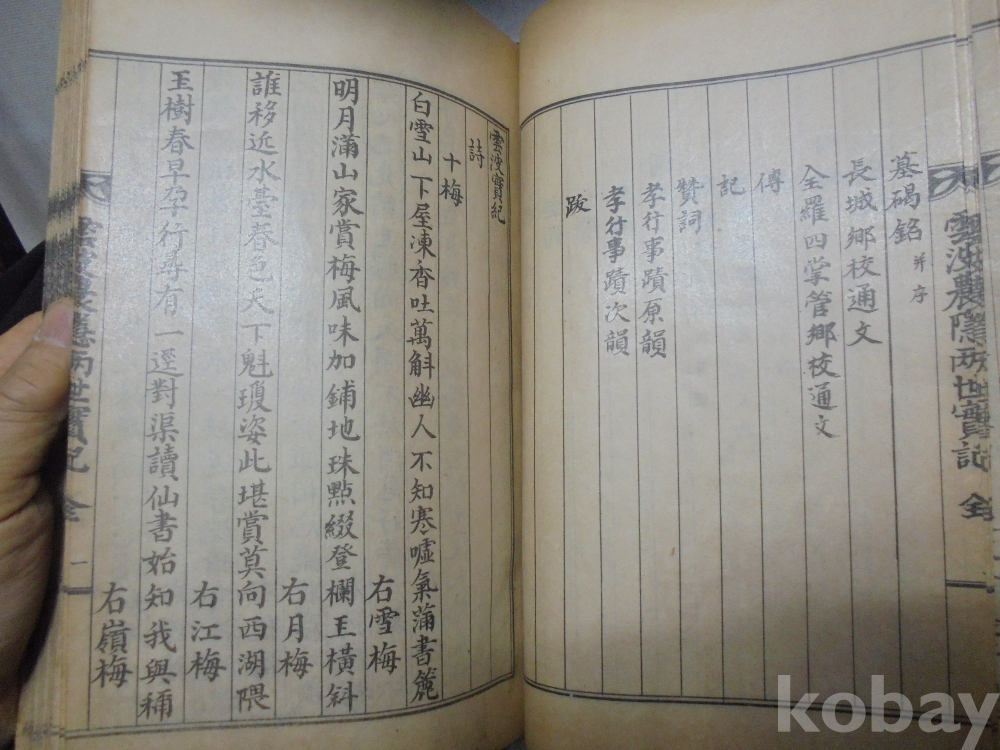 雲波農隱兩世寶記 全
墓碣銘 并序
長城鄉校通文
全羅四掌管鄉校通文
傳
記
贊詞
孝行事蹟原韻
孝行事蹟次韻
跋
雲波寶紀
詩
十梅
白雪山下屋凍香吐萬斛幽人不知寒噓氣蒲書簏
右雪梅
明月滿山家賞梅風味加鋪地珠點綴登欄玉橫斜
右月梅
誰移近水臺春色天下魁瓊姿此堪賞莫向西湖隈
右江梅
玉樹春早孕行尋有一逕對渠讀仙書始知我與稱
右嶺梅
雲波農隱兩世寶記 全 一
kobay